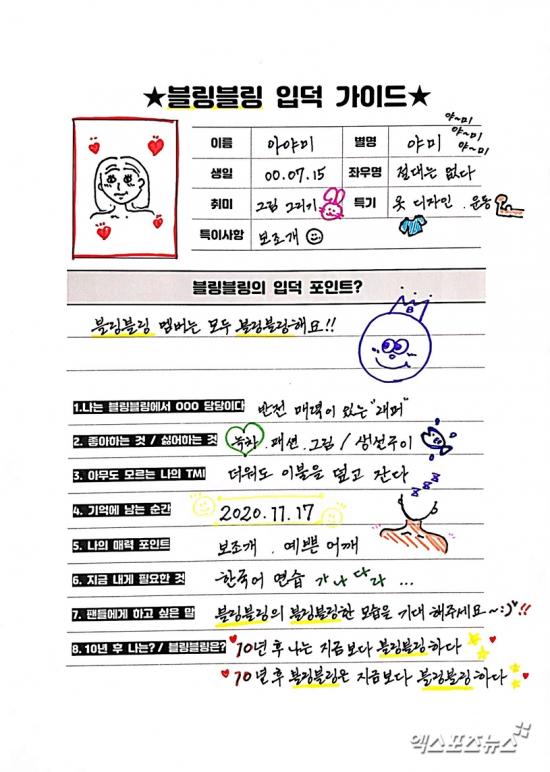 ★블링블링 입덕 가이드★
야~미
야~미
야~미
이름 아야미 별명 야미
생일 00.07.15 좌우명 절대는 없다
취미 그림 그리기 특기 옷 디자인. 운동
특이사항 보조개
블링블링의 입덕 포인트?
블링블링 멤버는 모두 블링블링해요!!
B
1.나는 블링블링에서 OOO 담당이다 반전 매력이 있는 "래퍼"
2. 좋아하는 것 / 싫어하는 것 녹차. 패션. 그림 / 생선구이
3. 아무도 모르는 나의 TMI 더워도 이불을 덮고 잔다
z z z
4. 기억에 남는 순간 2020.11.17
5. 나의 매력 포인트 보조개. 예쁜 어깨
6. 지금 내게 필요한 것 한국어 연습 가 나 다 라 ...
7. 팬들에게 하고 싶은 말 블링블링의 블링블링한 모습을 기대 해주세요~:)!!
8. 10년 후 나는? / 블링블링은? 10년 후 나는 지금보다 블링블링하다
10년 후 블링블링은 지금보다 블링블링하다
엑스포츠뉴스